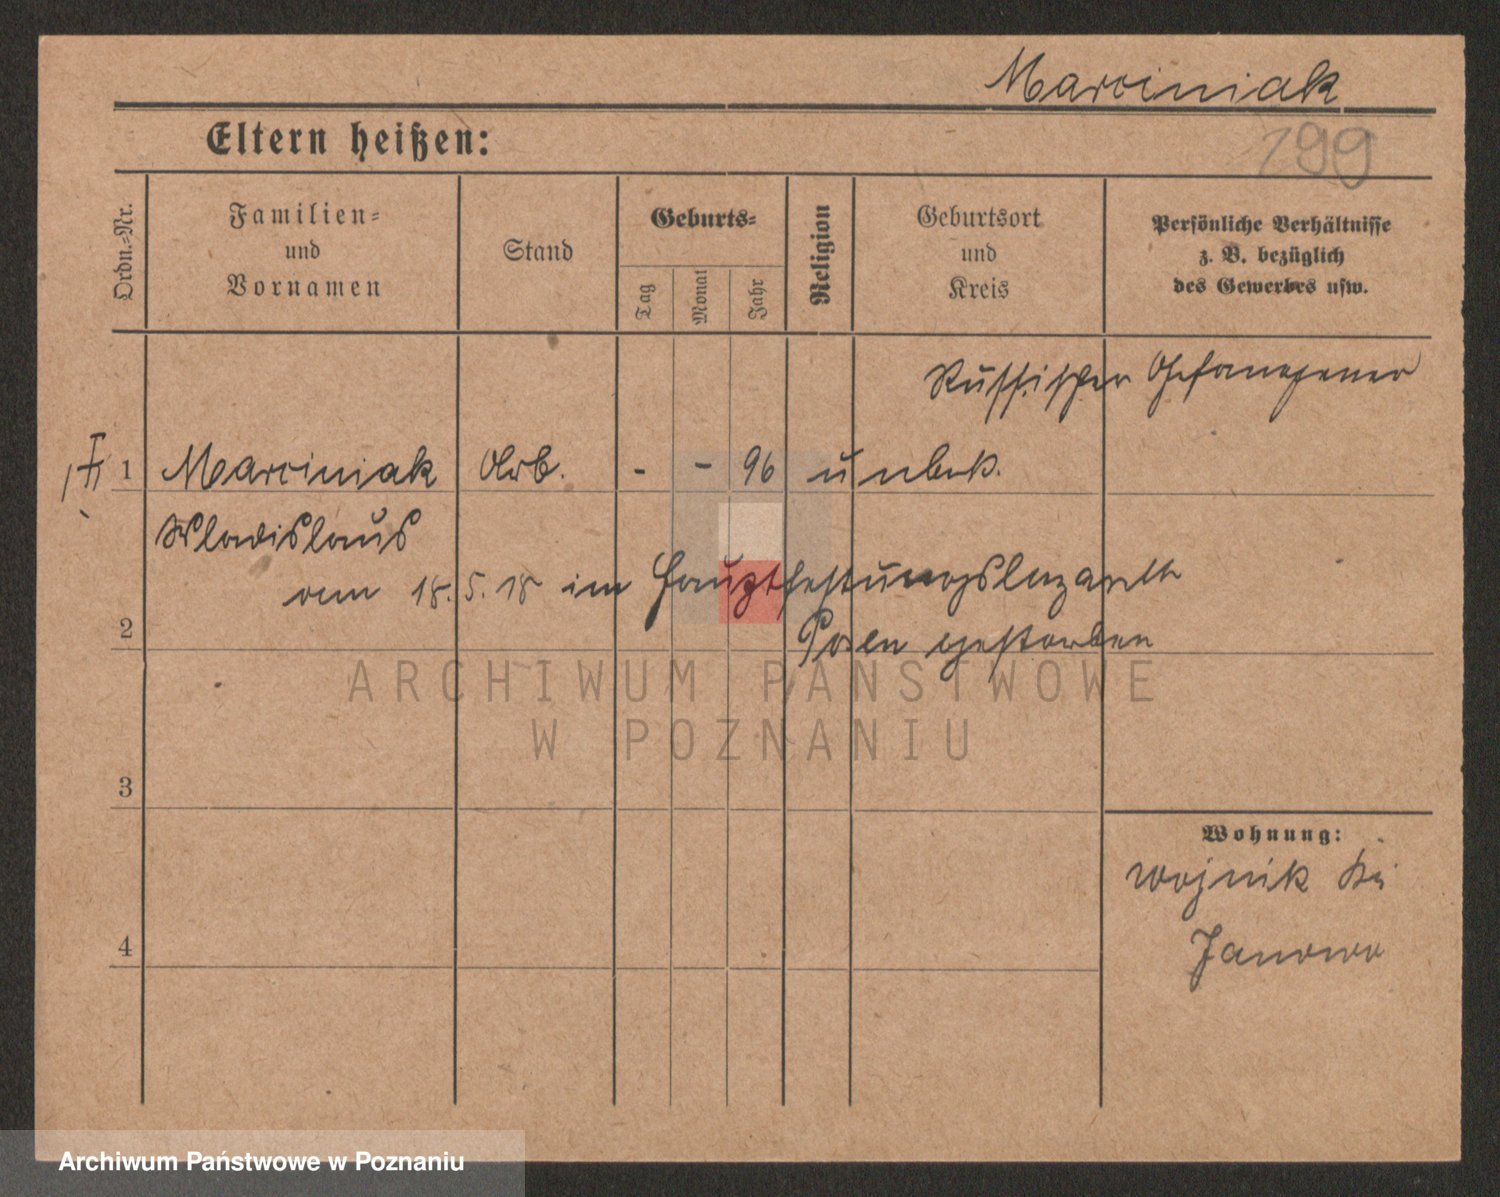 Marciniak
199
Eltern heißen:
Ordn.-Nr.
Familien-
und
Vornamen
Stand
Geburts-
Tag
Monat
Jahr
Religion
Geburtsort
und
Kreis
Persönliche Verhältnisse
z. B. bezüglich
des Gewerbes usw.
Russischer Gefangener
1 Marciniak Arb. - - 96 unbek.
Wladislaus
am 18.5.18 im Hauptfestungslazareth
2
Posen gestorben
ARCHIWUM PAŃSTWOWE
W POZNANIU
3
Wohnung:
Wojnik
4
Janowo
Archiwum Państwowe w Poznaniu